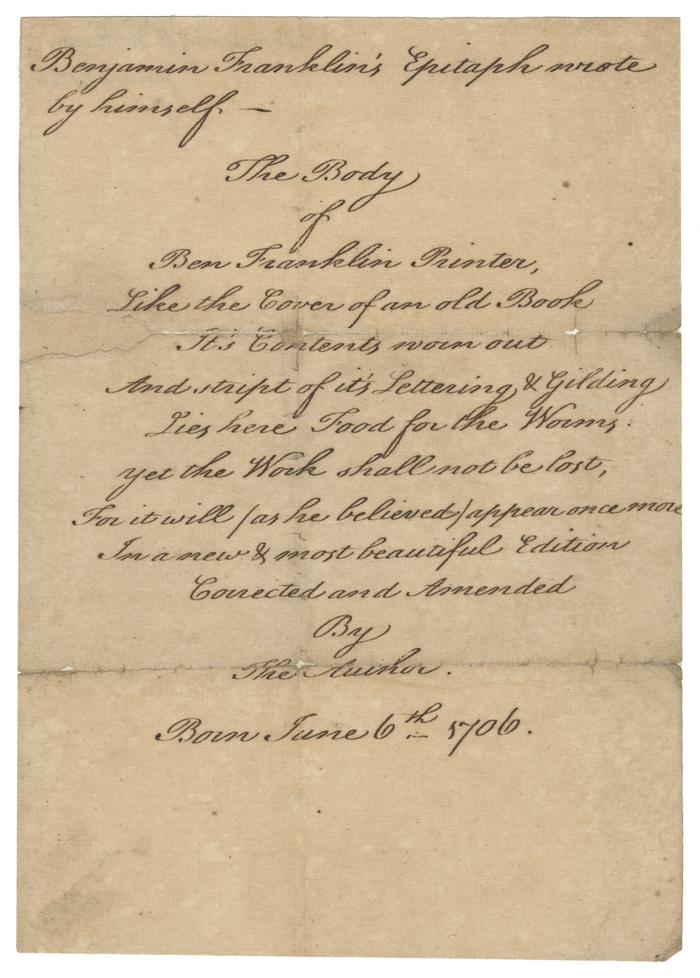 Benjamin Franklin's Epitaph wrote
by himself. —
The Body
of
Ben Franklin Printer,
Like the Cover of an old Book
It's Contents worn out
And stript of it's Lettering & Gilding
Lies here Food for the Worms.
yet the Work shall not be lost,
For it will (as he believed) appear once more
In a new & most beautiful Edition
Corrected and Amended
By
The Author.
Born June 6th 1706.